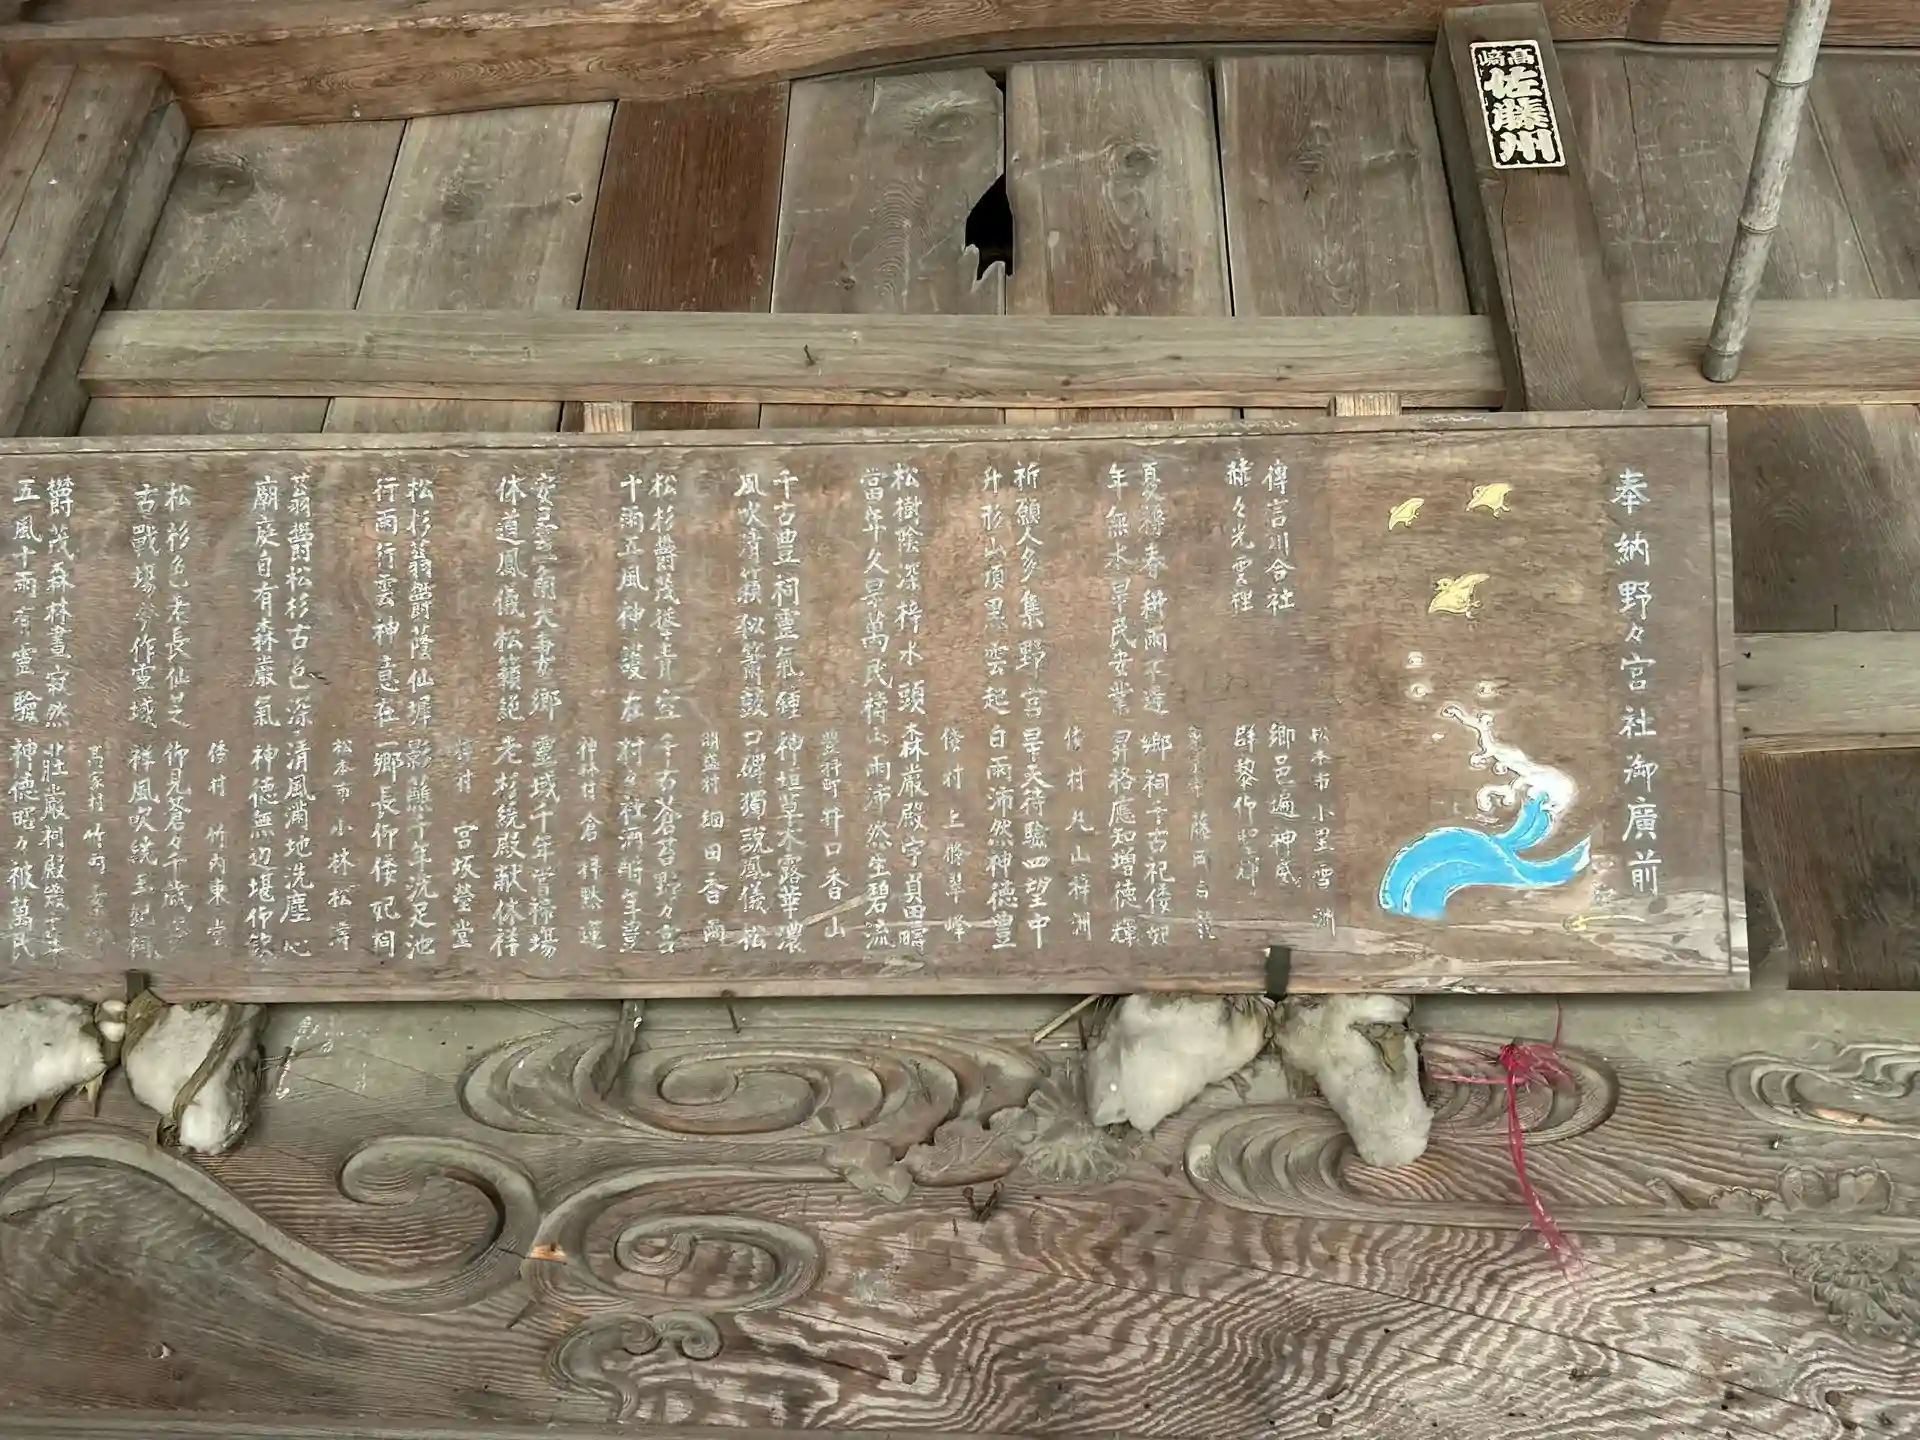 奉納野々宮社御廣前
傳言川合社
赫々光雲裡
郷邑遍神威
群黎仰聖輝
松本市 小里雪洲
夏耨春耕雨不違
年無水旱民安業
郷祠千古祀倭妃
昇格應知増徳輝
藤岡白龍
祈願人多集野宮
升形山頂黒雲起
旱天待驗四望中
白雨沛然神徳豊
倭村 丸山梓洲
松樹陰深梓水頭
當年久旱萬民禱
森巌殿宇眞田疇
山雨沛然生碧流
倭村 上條翠峰
千古豊祠霊氣鍾
風吹清籟似簫鼓
神垣草木露華濃
口碑獨說鳳儀松
豊科町 井口香山
松杉欝茂徒青空
十雨五風神護在
千古蒼苔野々宮
村々社酒酣年豊
明盛村 細田香雨
安曇角大妻郷
休道鳳儀松籟絶
霊域千年嘗禄場
老杉統殿献休祥
神林村 倉科黙蓮
松杉蓊欝蔭仙墀
行雨行雲神意在
影蘸千年洗足池
一郷長仰倭妃祠
梓村 宮坂瑩堂
蓊欝松杉古色深
廟庭自有森巌氣
清風滿地洗塵心
神徳無辺堪仰欽
松本市 小林松濤
松杉色老長仙芝
古戰場今作霊域
仰見蒼々千歳
祥風吹統玉妃祠
倭村 竹内東
欝茂森林晝寂然
五風十雨有霊驗
壮巌祠殿幾
神徳昭々被萬民
高家村 竹内
高崎
佐藤州